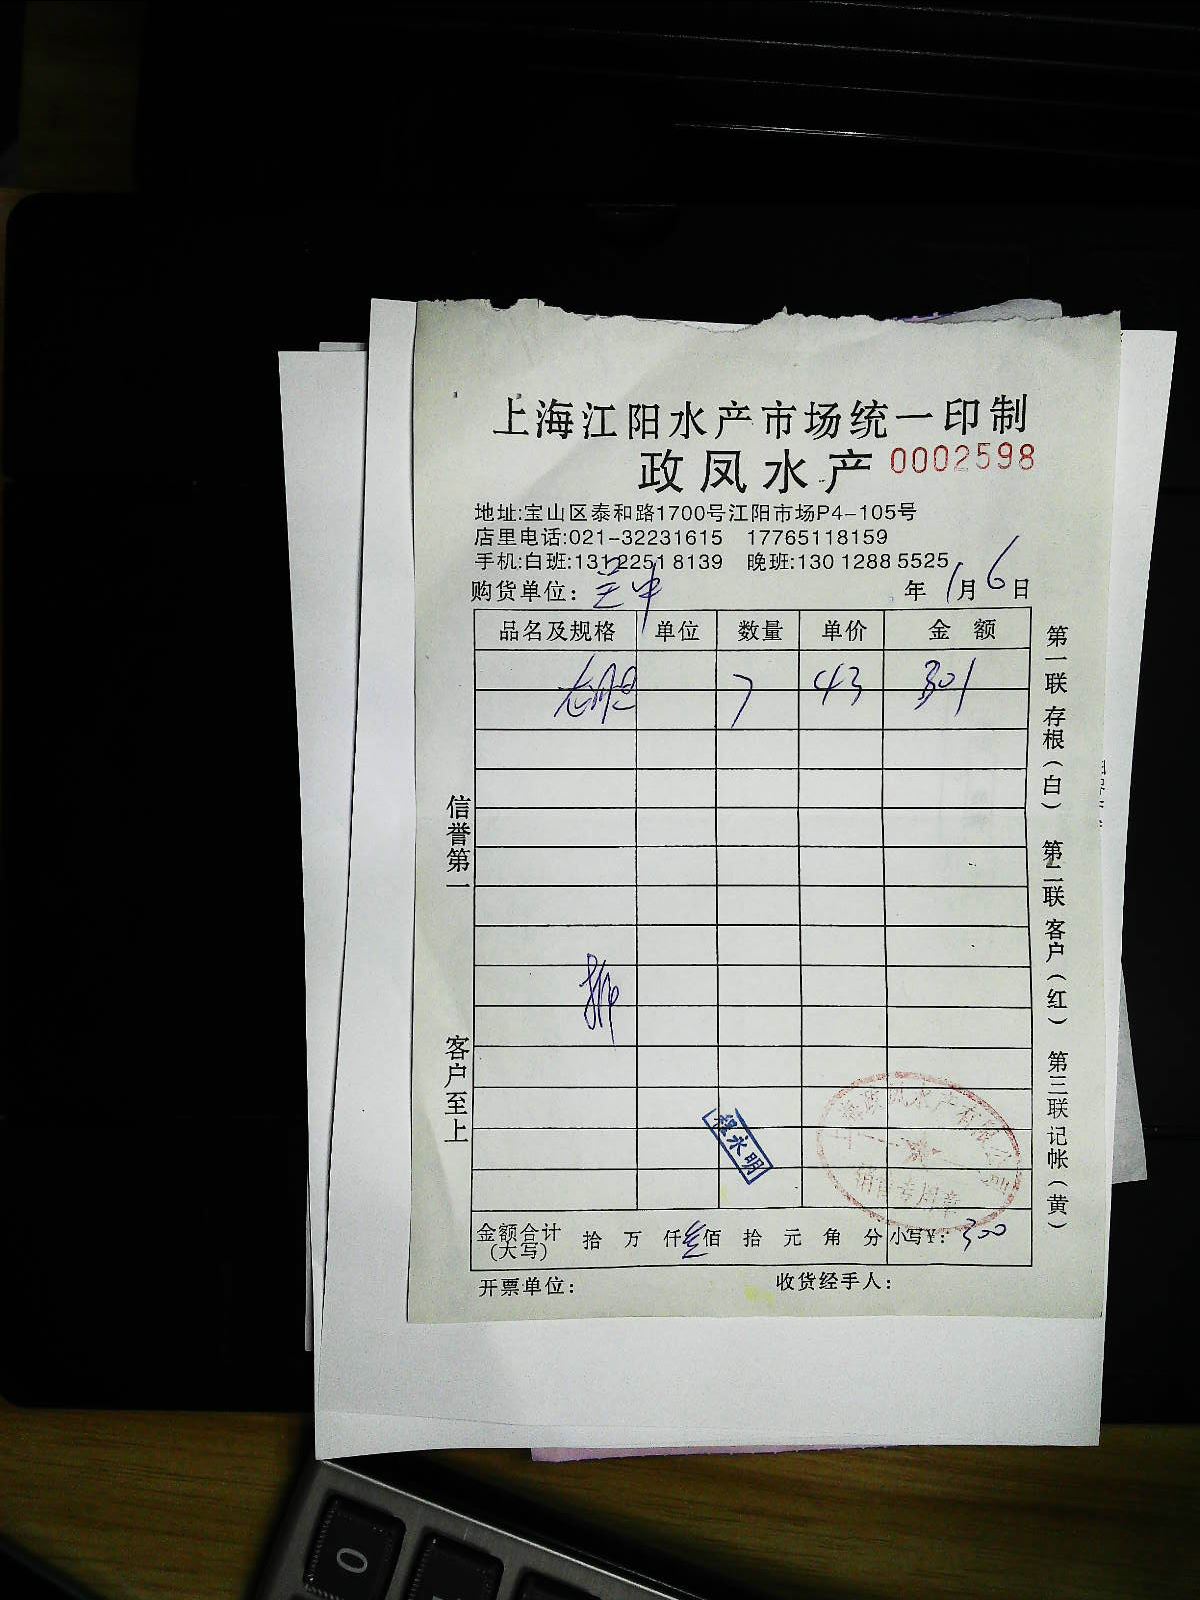 上海江阳水产市场统一印制
政凤水产 0002598
地址:宝山区泰和路1700号江阳市场P4-105号
店里电话:021-32231615 17765118159
手机:白班:131 2251 8139 晚班:130 1288 5525
购货单位: 年 1月 6日
品名及规格 单位 数量 单价 金 额
7 43 301
信誉第一
客户至上
第一联 存根(白) 第二联 客户(红) 第三联 记帐(黄)
程永明
上海政凤水产有限公司
销售专用章
金额合计(大写) 拾 万 仟 叁佰 拾 元 角 分 小写¥: 300
开票单位: 收货经手人:
0